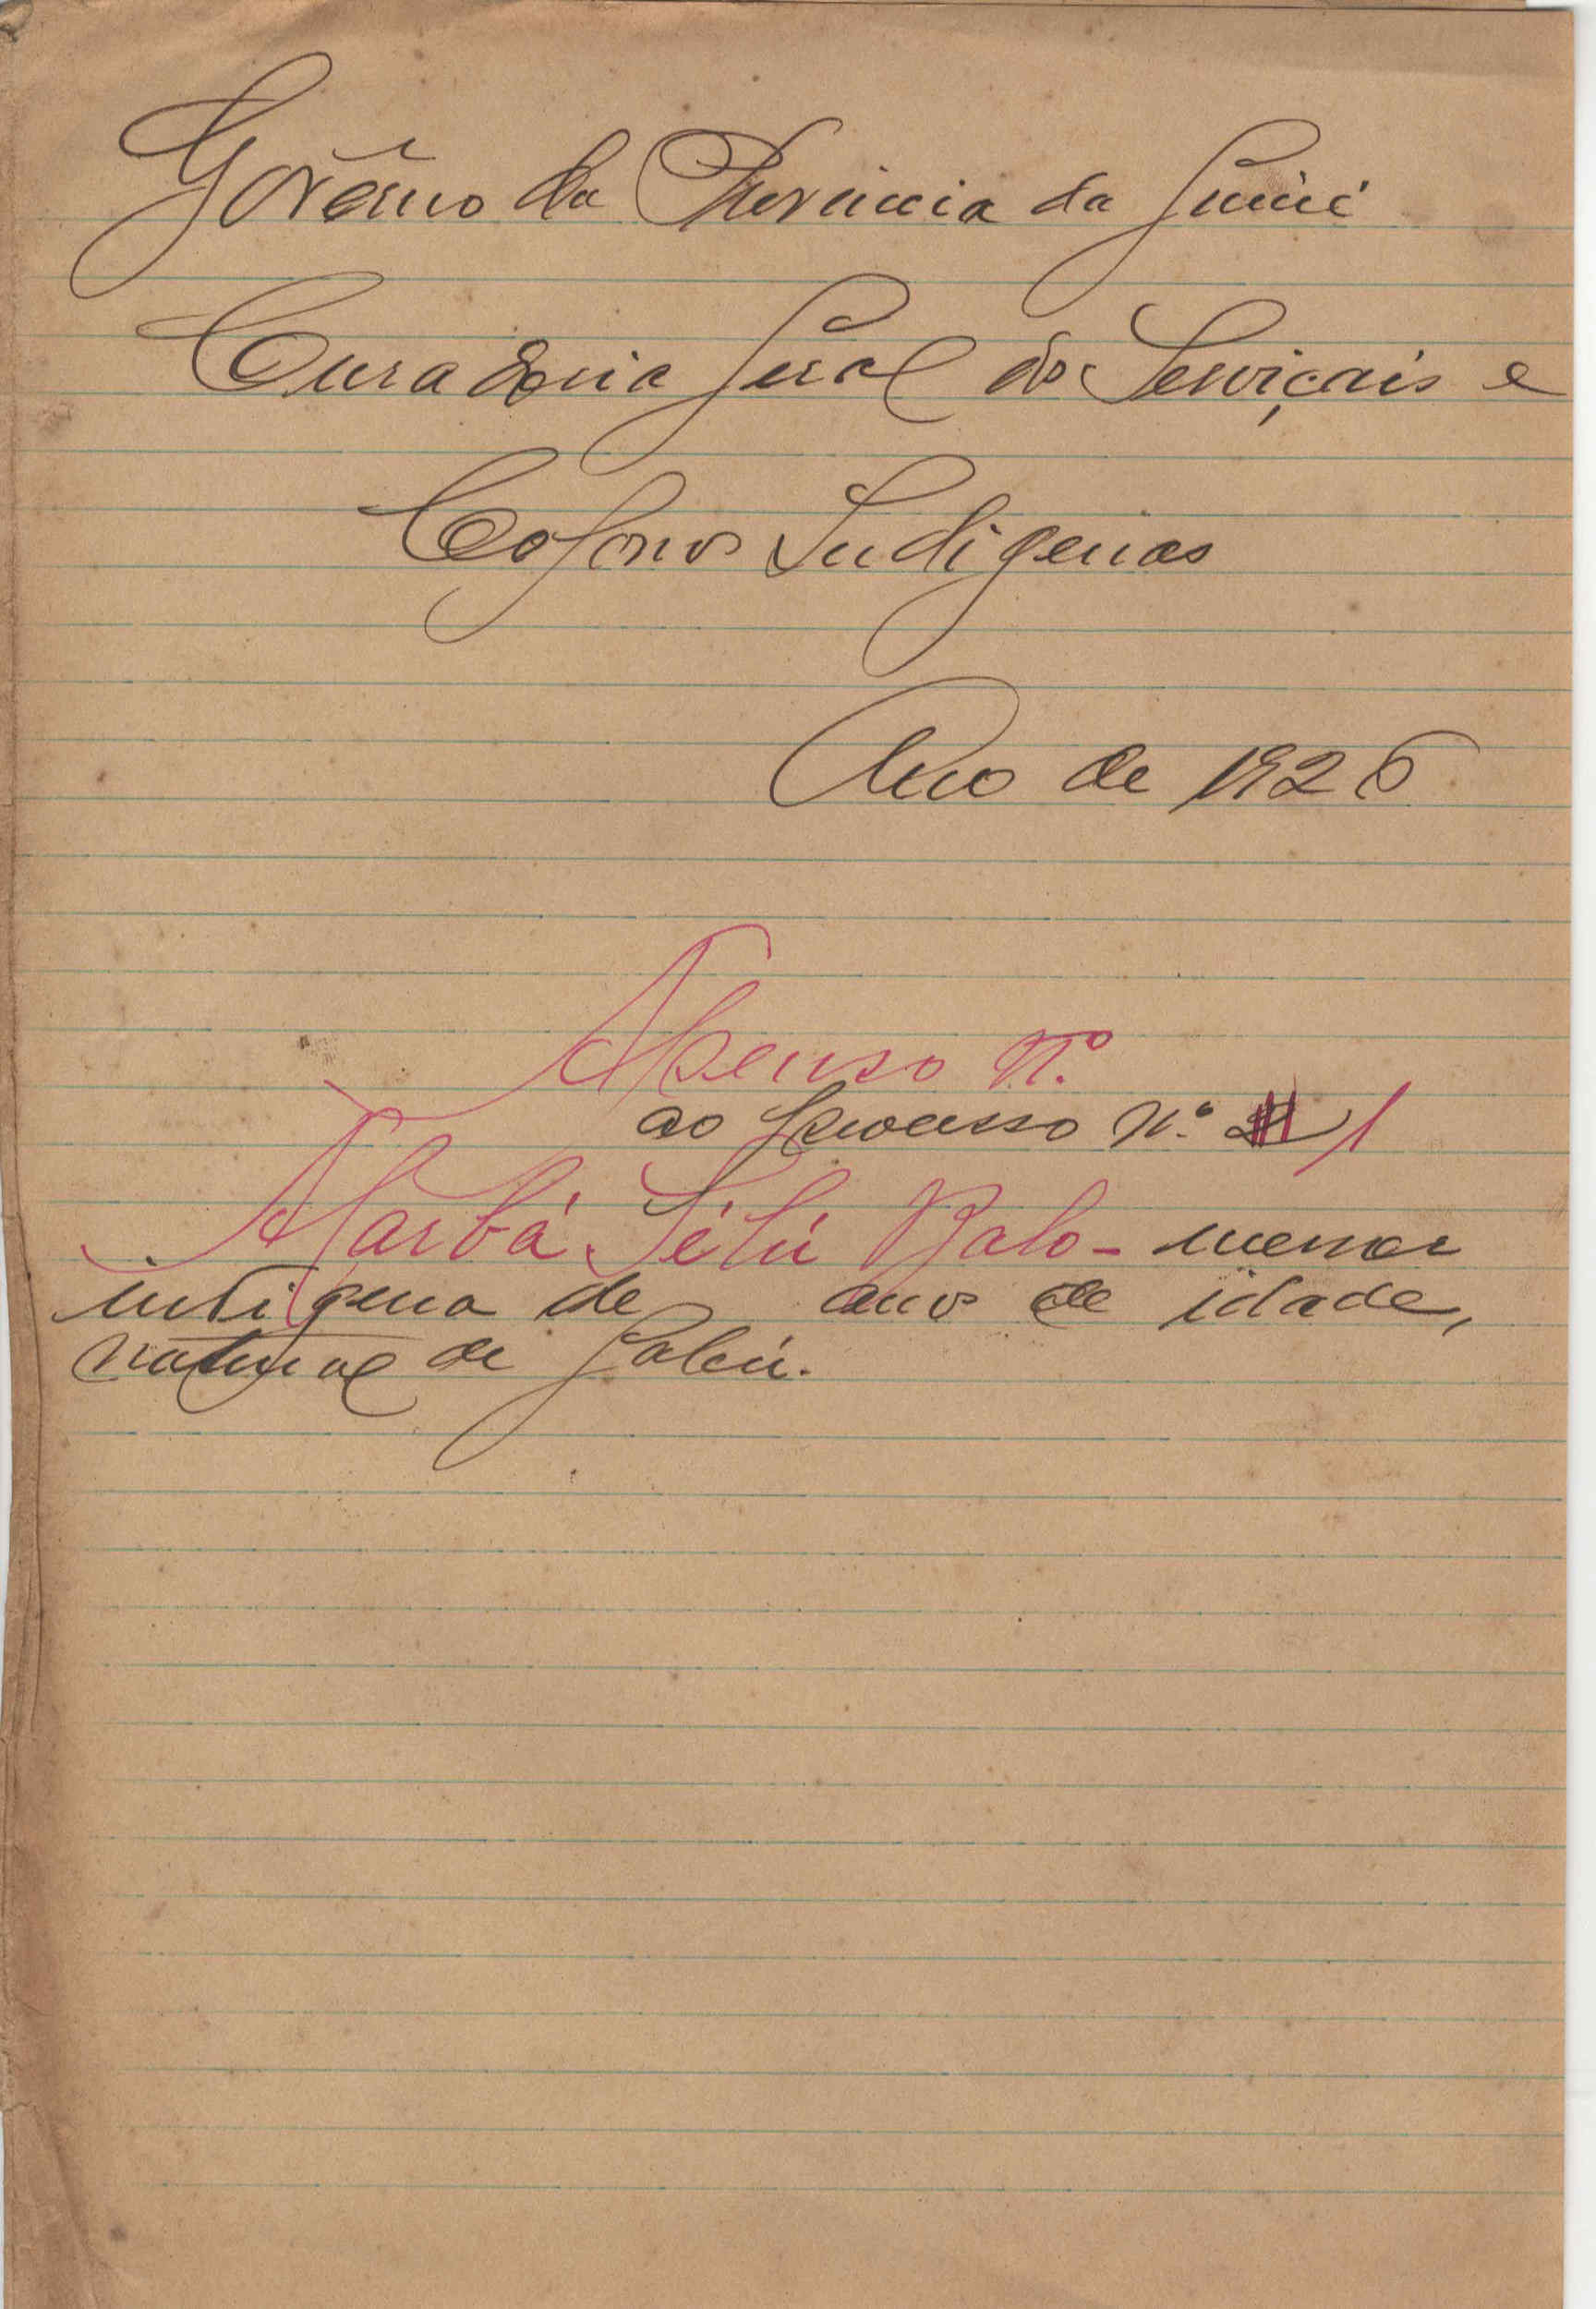 Govêrno da Provincia da Guiné
Curadoria Geral dos Serviçais e
Colonos Indigenas
Ano de 1926
Apenso n.º
ao processo n.º 1
menor
indigena de anos de idade,
natural de Gabú.